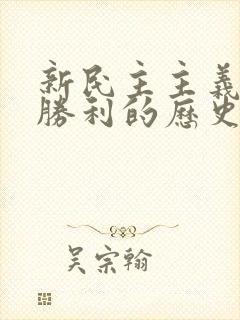 新民主主義
勝利的歷史
吳宗翰